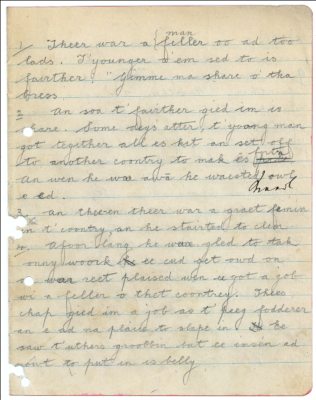 man
1/ Theer war a feller oo ad too
lads. T'younger o'em sed to is
fairther: "Gimme ma share o tha
brass
2 An soa t'fairther gied im is
share. Some deys after, t'young man
got tegither all es ket an set off
to another coontry to mak es
An wen he wa awa he waested owt
e ed.
3. an theeen theer war a graet famin
in t' coontry an he stairted to clem
4. Afoor lang he wax gled to tak
oney woork he ee cud get owd on
war reet plaised wen e got a job
wi a feller o thet coontrey. Thees
chap gied im a job as t' peeg fodderer
an e ad na plaice to slape in he
saw t'athers groobbin but ee ensen ad
nowt to put in is belly